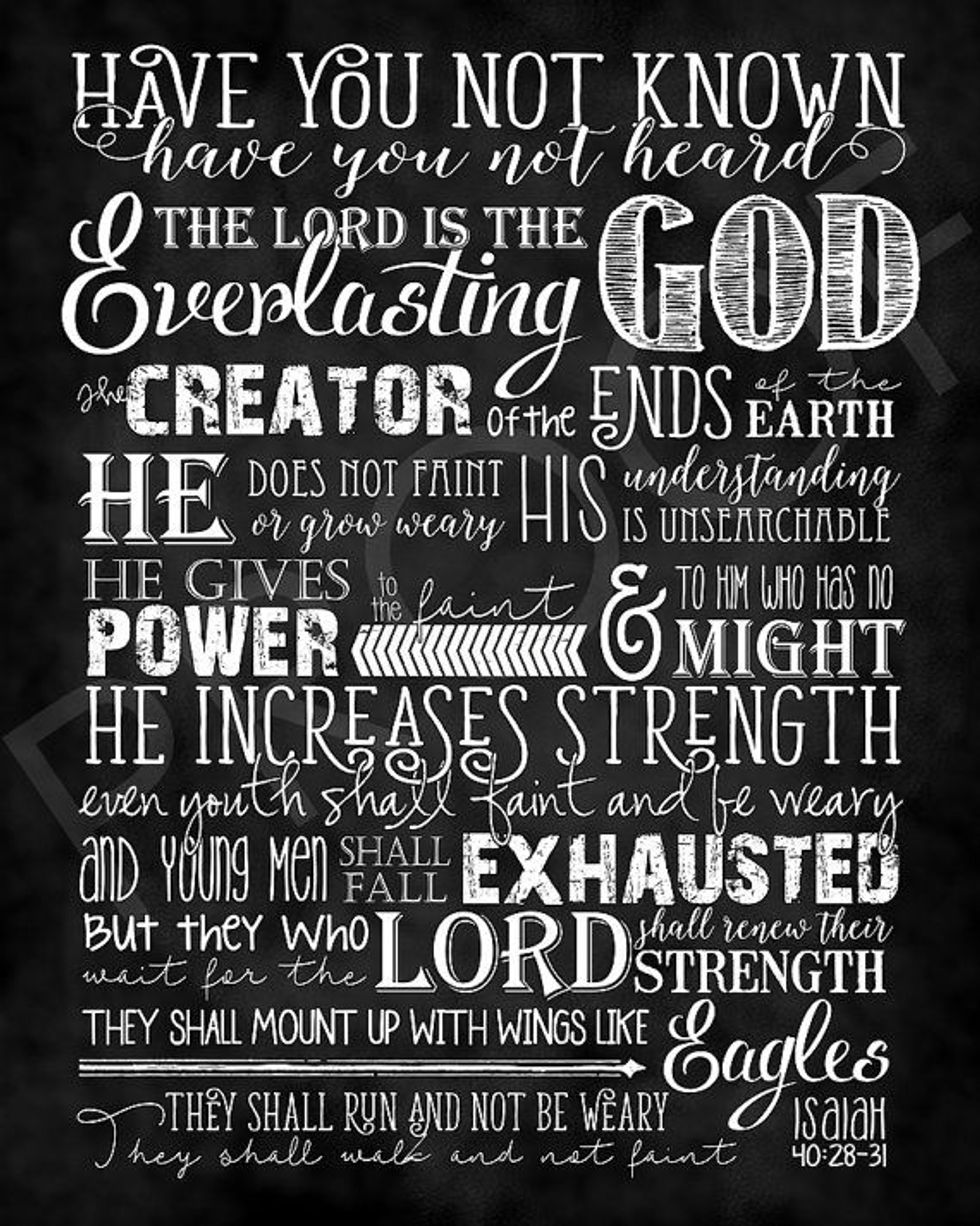 HAVE YOU NOT KNOWN
have you not heard
THE LORD IS THE
Everlasting GOD
the CREATOR of the ENDS of the EARTH
HE DOES NOT FAINT or grow weary HIS understanding IS UNSEARCHABLE
HE GIVES POWER to the faint & TO HIM WHO HAS NO MIGHT
HE INCREASES STRENGTH
even youth shall faint and be weary
AND YOUNG MEN SHALL FALL EXHAUSTED
BUT THEY WHO wait for the LORD shall renew their STRENGTH
THEY SHALL MOUNT UP WITH WINGS LIKE Eagles
THEY SHALL RUN AND NOT BE WEARY
They shall walk and not faint
ISAIAH
40:28-31
PROOF